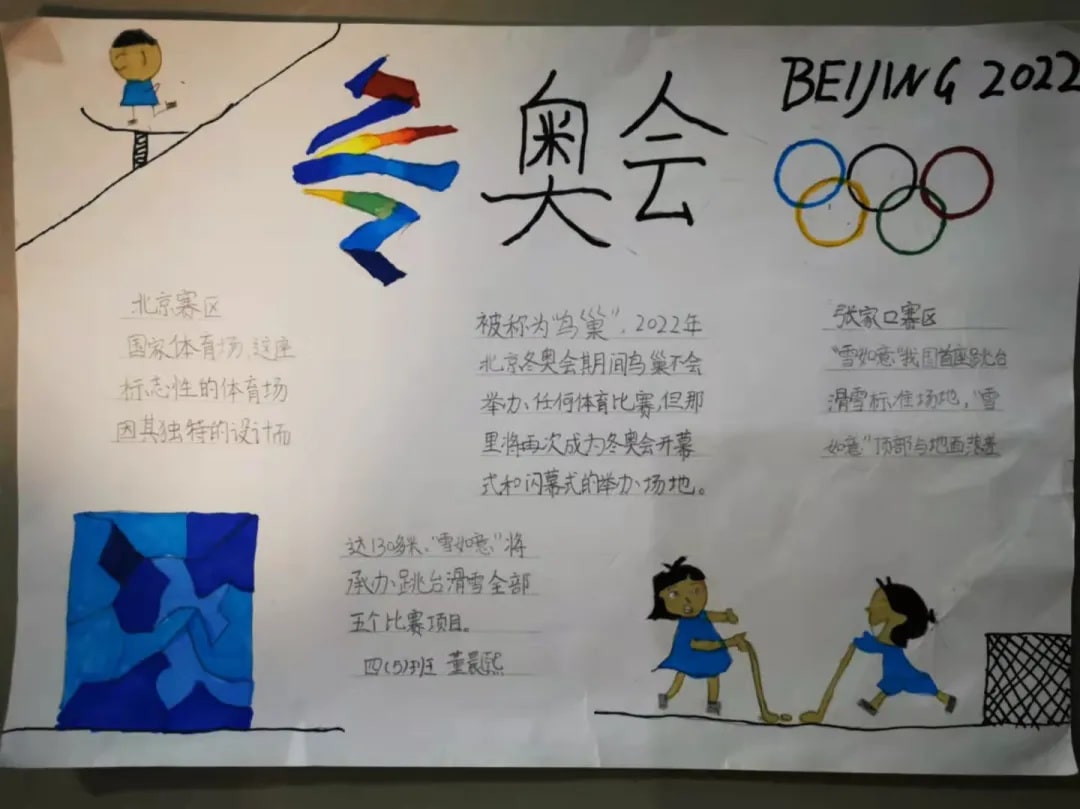 奥会
BEIJING 2022
北京赛区
国家体育场,这座
标志性的体育场
因其独特的设计而
被称为“鸟巢”,2022年
北京冬奥会期间鸟巢不会
举办任何体育比赛,但那
里将再次成为冬奥会开幕
式和闪幕式的举办场地。
张家口赛区
“雪如意”我国首座跳台
滑雪标准场地,“雪
如意”顶部与地面落差
达130多米,“雪如意”将
承办跳台滑雪全部
五个比赛项目。
四(5)班 董晨熙